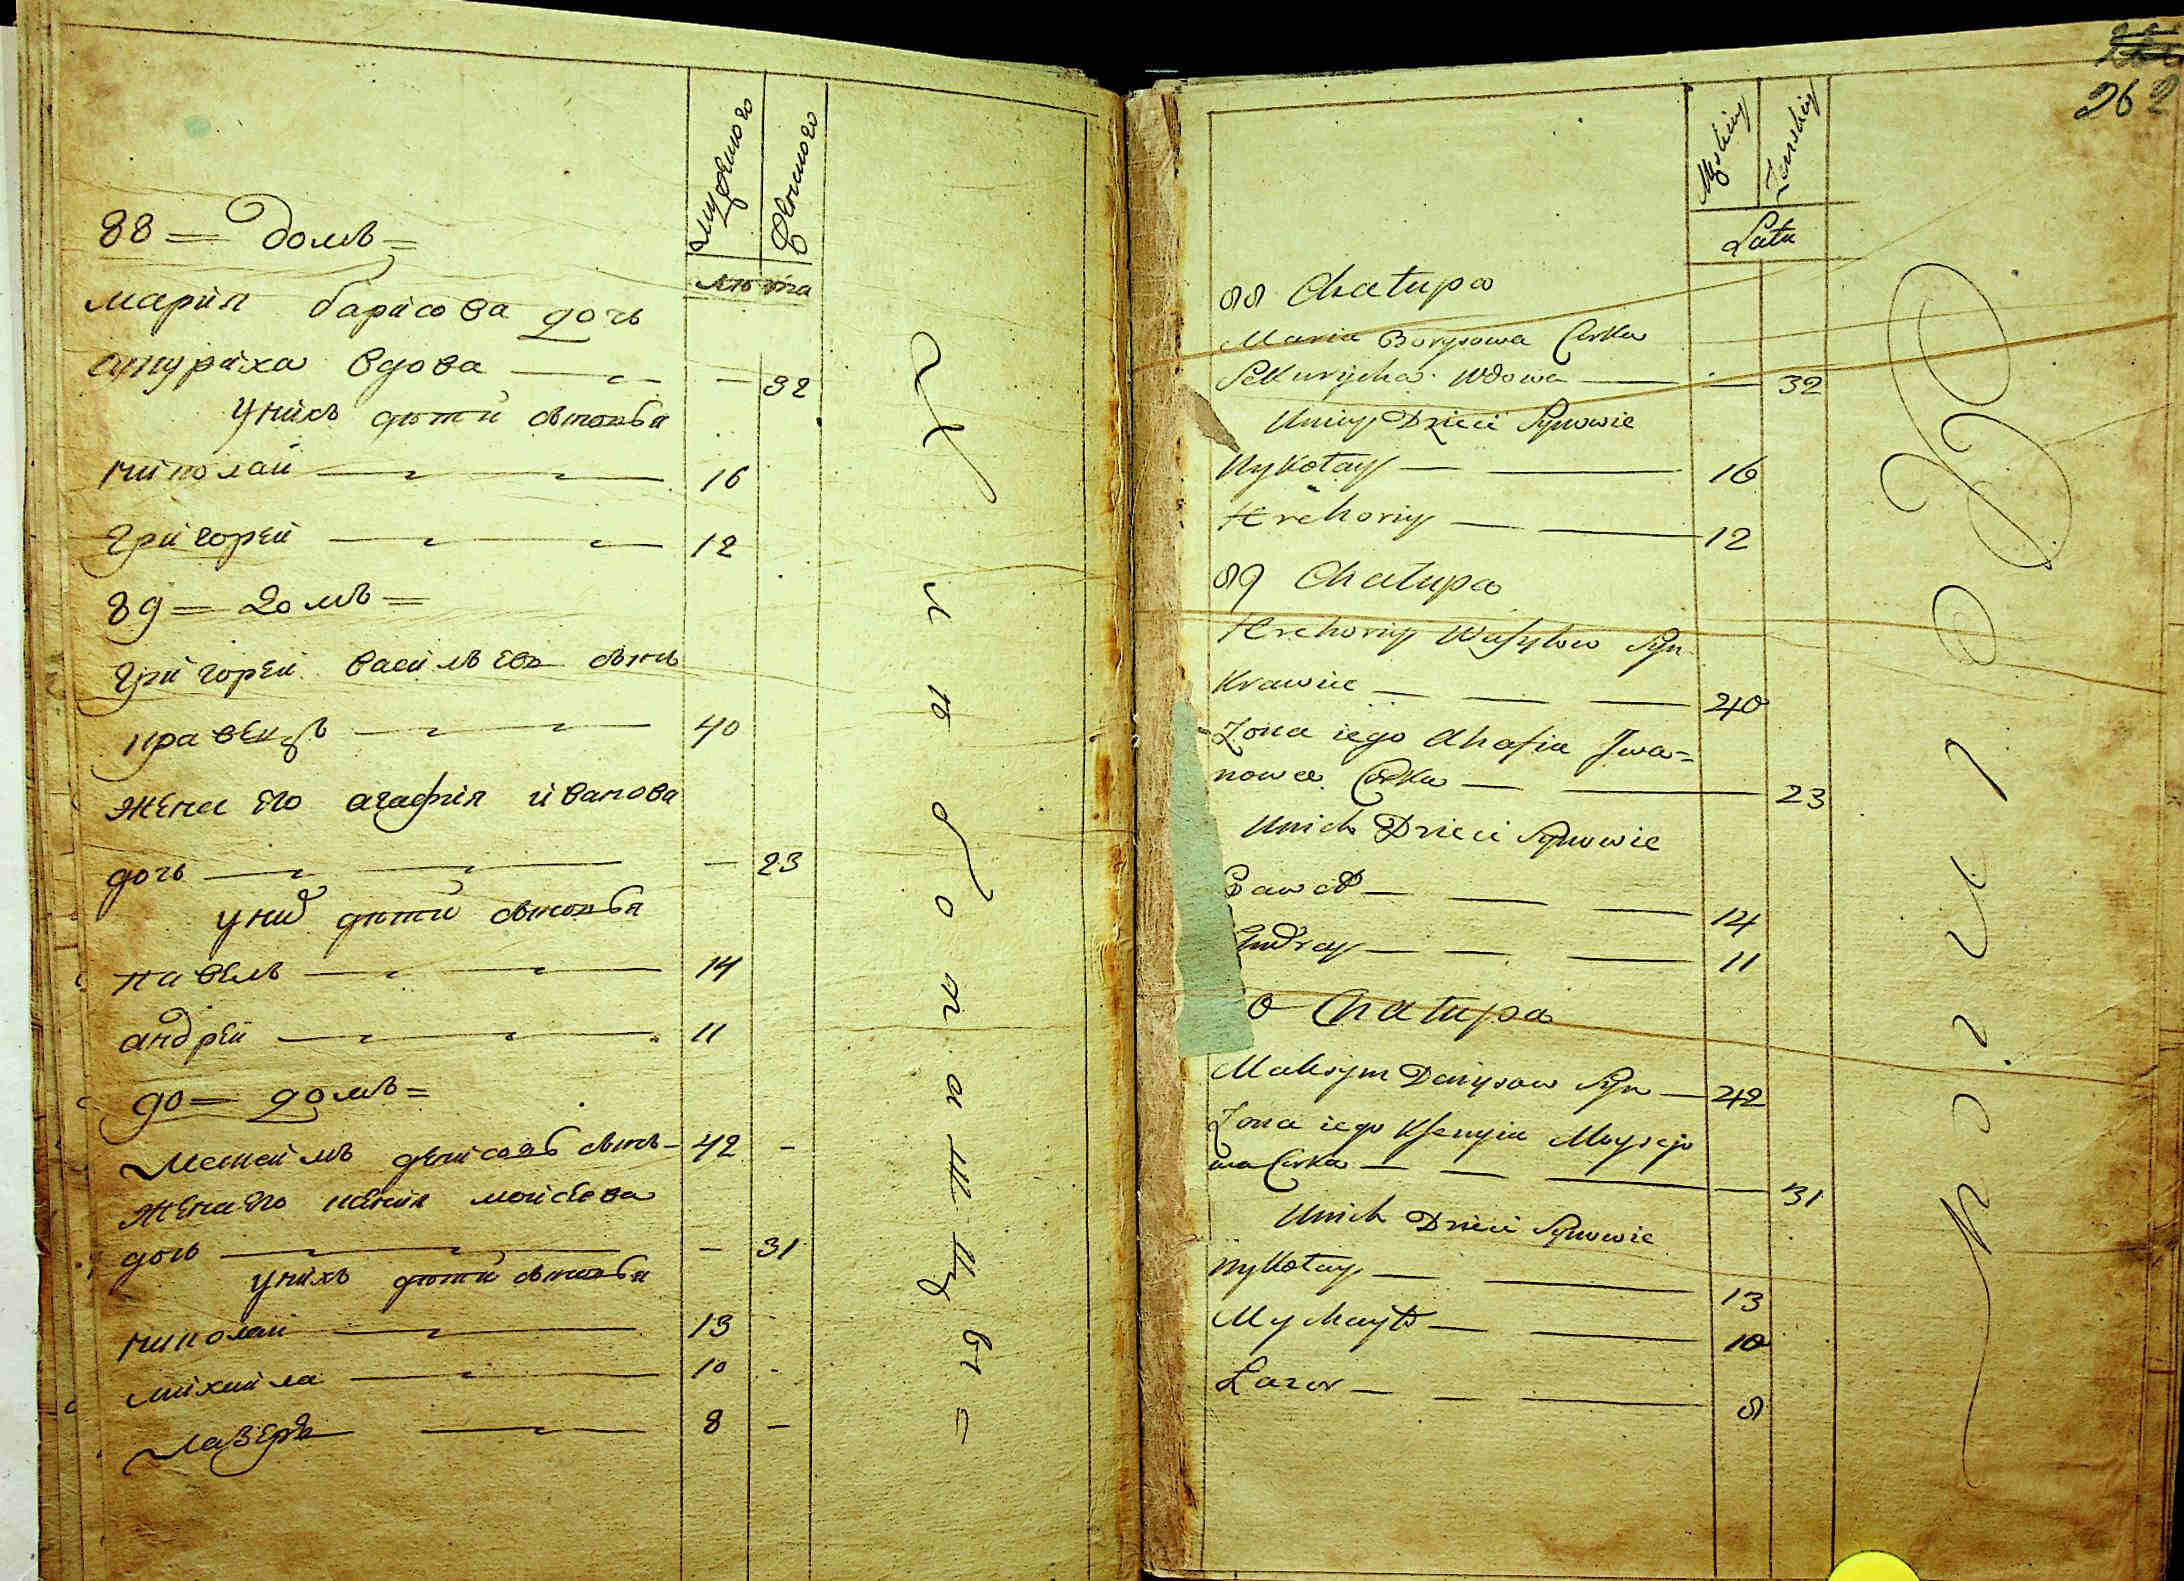 мужеского
женского
лѣта
88 = домъ =
марія барисова дочь
вдова — — 32
унихъ дѣти сыновья
николай — 16
григорей — 12
89 = домъ =
григорей васильевъ сынъ
кравецъ — 40
жена его агафия иванова
дочь — — 23
уних дѣти сыновья
павелъ — 14
андрей — 11
90 = домъ =
максимъ денисовъ сынъ — 42 -
жена его ксения моисеева
дочь — — 31
унихъ дѣти сыновья
николай — 13
михайла — 10 -
лазеръ — 8 -
262
Męskiey
Żenskiey
Lata
88 Chałupa
Maria Borysowa Corka
Wdowa — — 32
Uniey Dzieci Synowie
Nykołay — — 16
Hrehoriy — — 12
89 Chałupa
Hrehoriy Wasylow Syn
Krawiec — — — 40
Żona iego Ahafia Iwa=
nowa Corka — — 23
Unich Dzieci Synowie
Paweł — — — 14
Andrey — — — 11
0 Chałupa
Maksym Denysow Syn — 42
Żona iego Ksenyia Moysejo
wa Corka — — — 31
Unich Dzieci Synowie
Nykołay — — 13
Mychayło — — 10
Lazor — — — 8